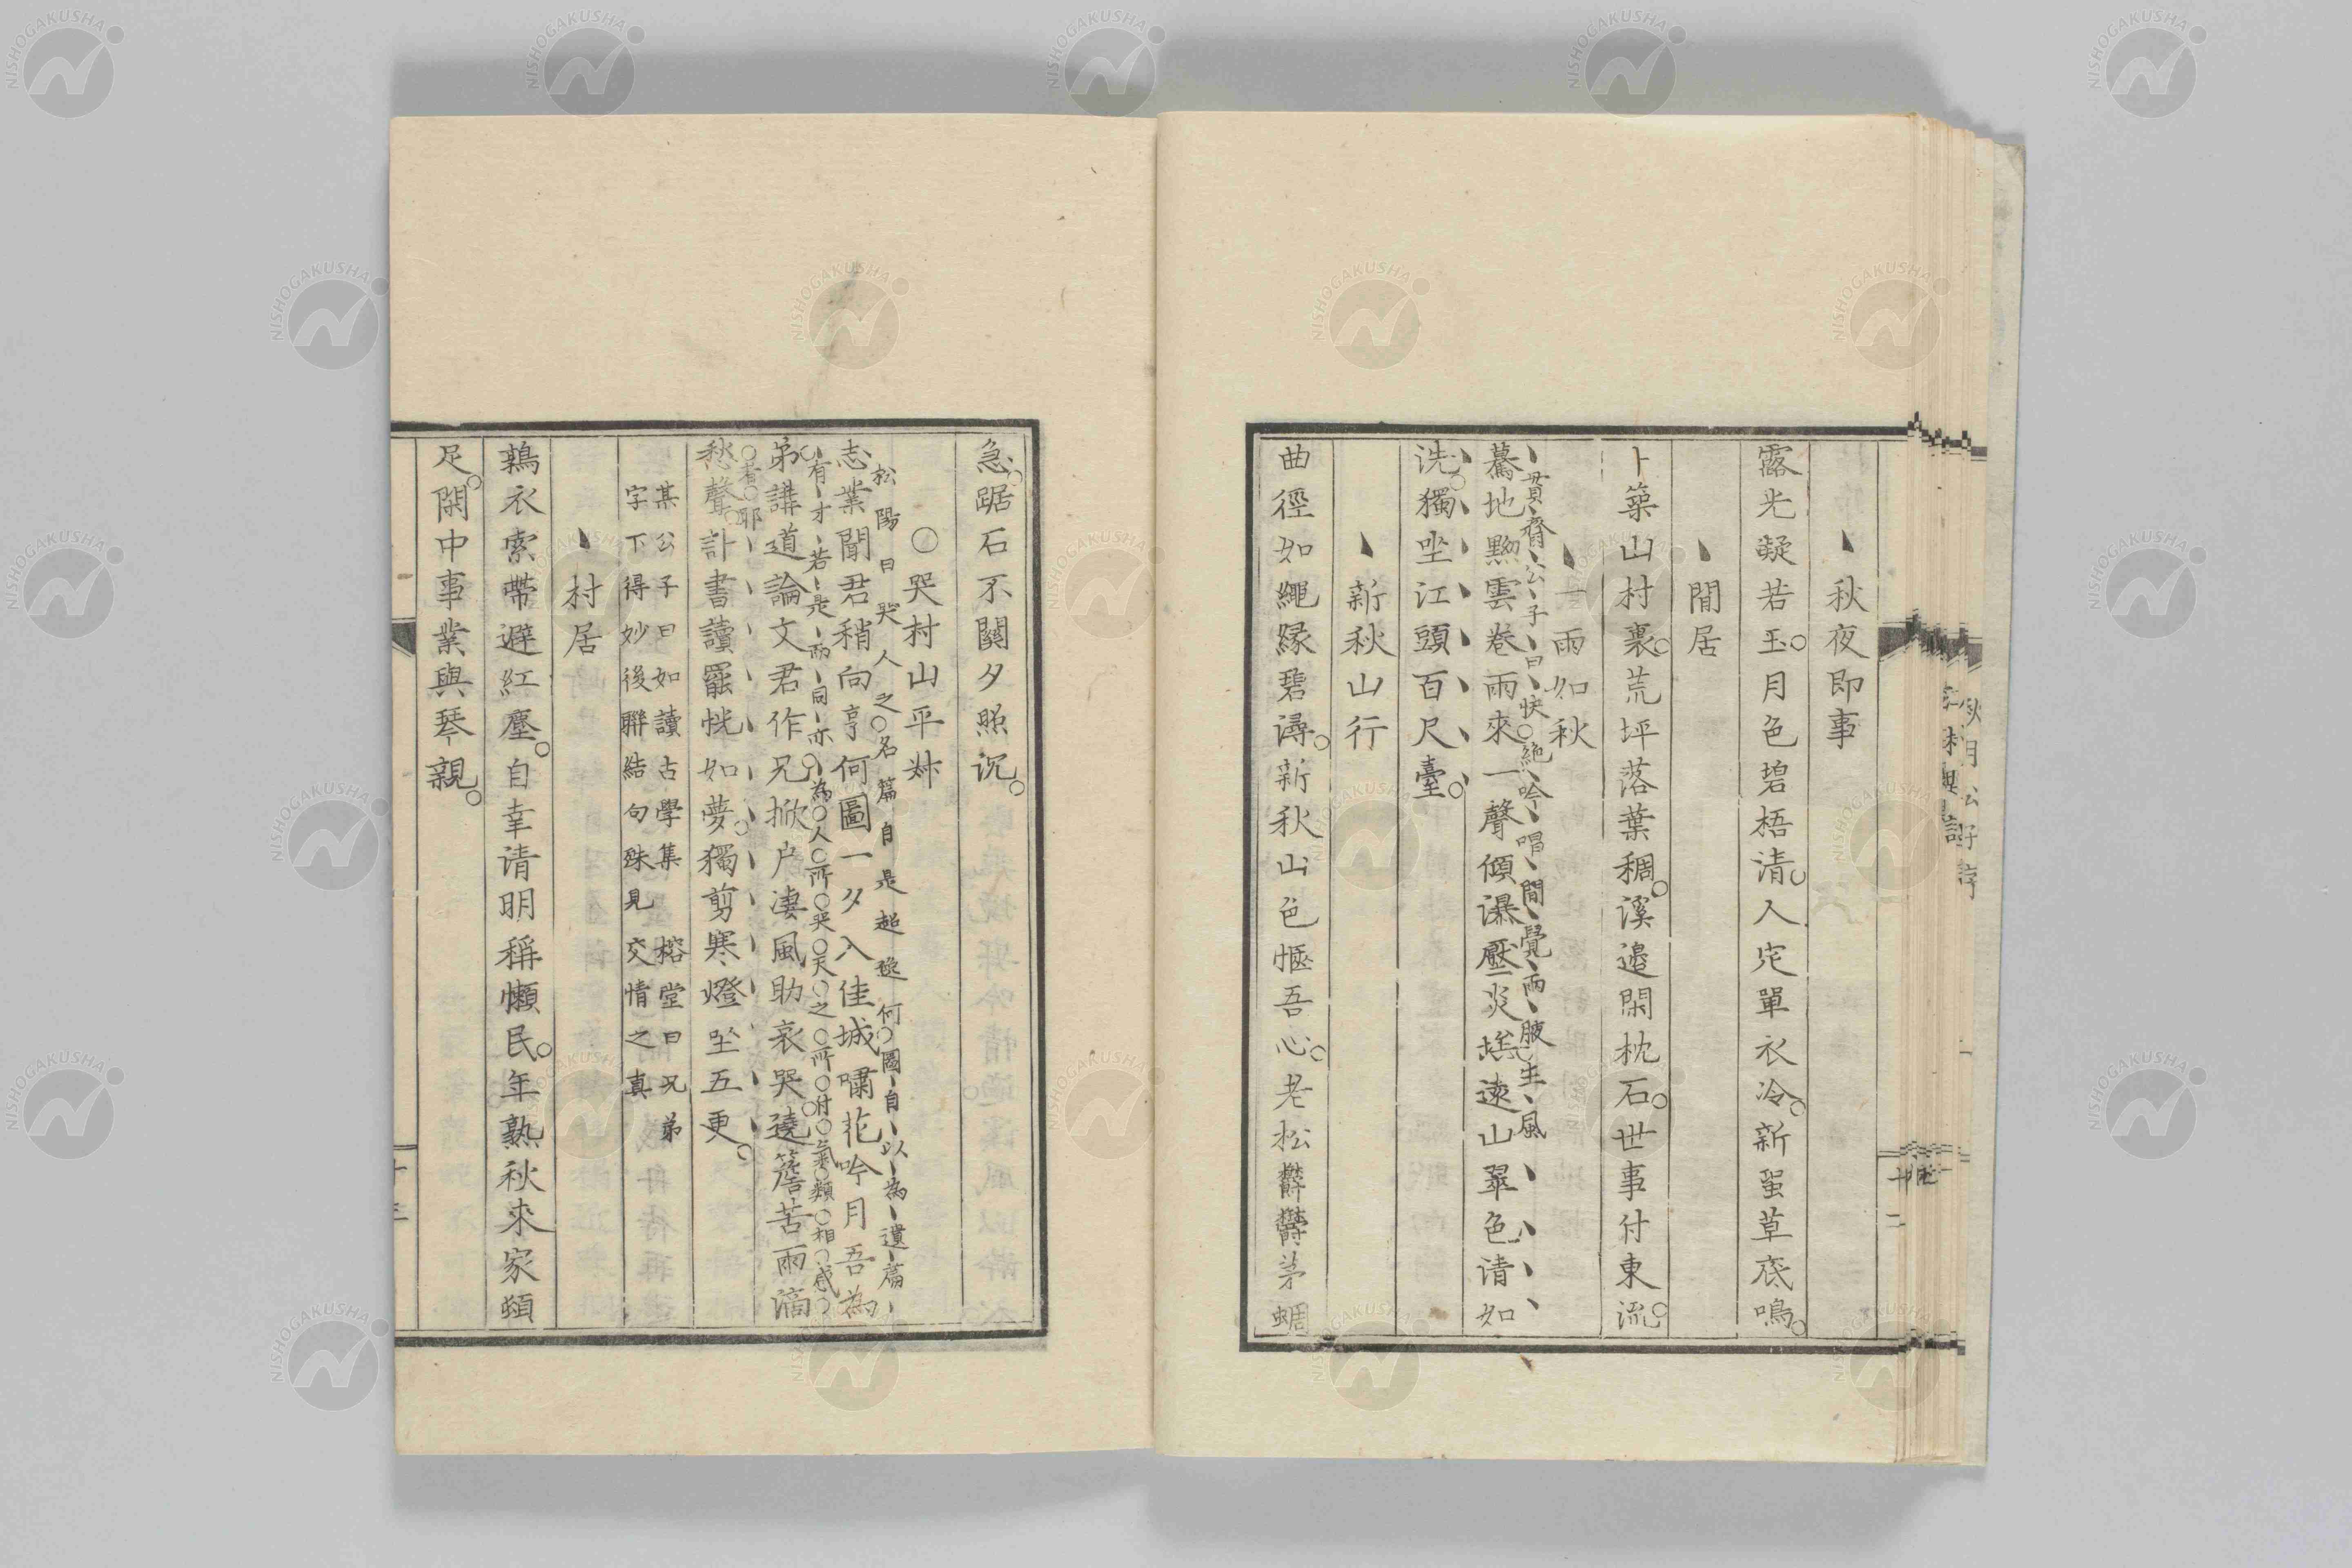 秋夜即事
露光凝若玉月色碧梧清人定單衣冷新蛩草底鳴
間居
卜築山村裏荒坪落葉稠溪邉閑枕石世事付東流
一雨如秋
貫齋公子曰快絶吟唱間覺兩腋生風
驀地黝雲巻雨來一聲傾瀑壓炎埃遠山翠色清如
洗獨坐江頭百尺臺
新秋山行
曲徑如繩縁碧潯新秋山色愜吾心老松欝欝茅蜩
急踞石不關夕照沉
哭村山平妹
松陽曰哭人之名篇自是超逸何圖自以為遺篇
志業聞君稍向亨何圖一夕入佳城嘯花吟月吾為
有才若是而同亦為人所哭天之所付氣類相感
弟講道論文君作兄掀户凄風助哀哭遶簷苦雨滴
者耶
愁聲計書讀罷恍如夢獨剪寒燈坐五更
某公子曰如讀古學集 榕堂曰兄弟
字下得妙後聯結句殊見交情之真
村居
鶉衣索帶避紅塵自幸请明稱懶民年熟秋來家頻
足閑中事業與琴親
十二
NISHOGAKUSHA